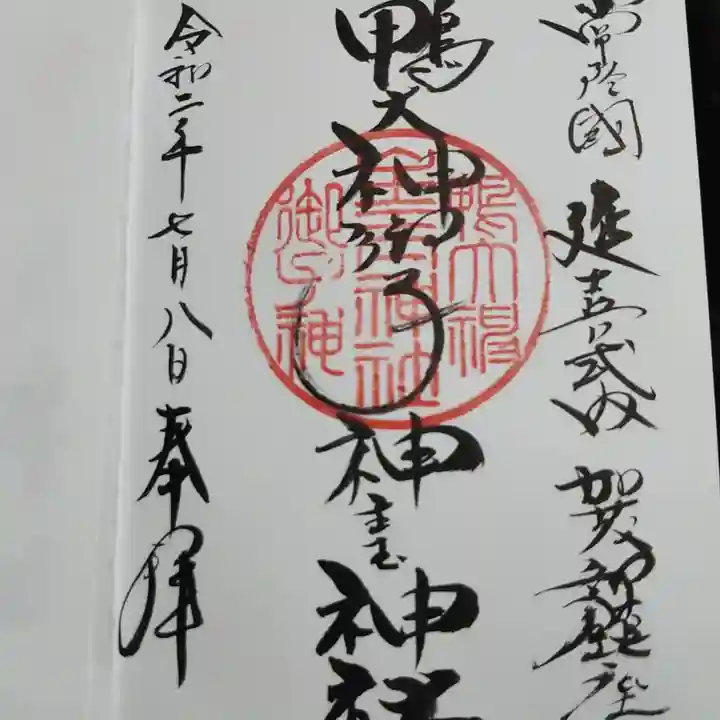 常陸國 延喜式内 賀茂新麓座
鴨大神御子神主玉神社
鴨大神
主玉神社
御子神
令和二年七月八日 奉拝